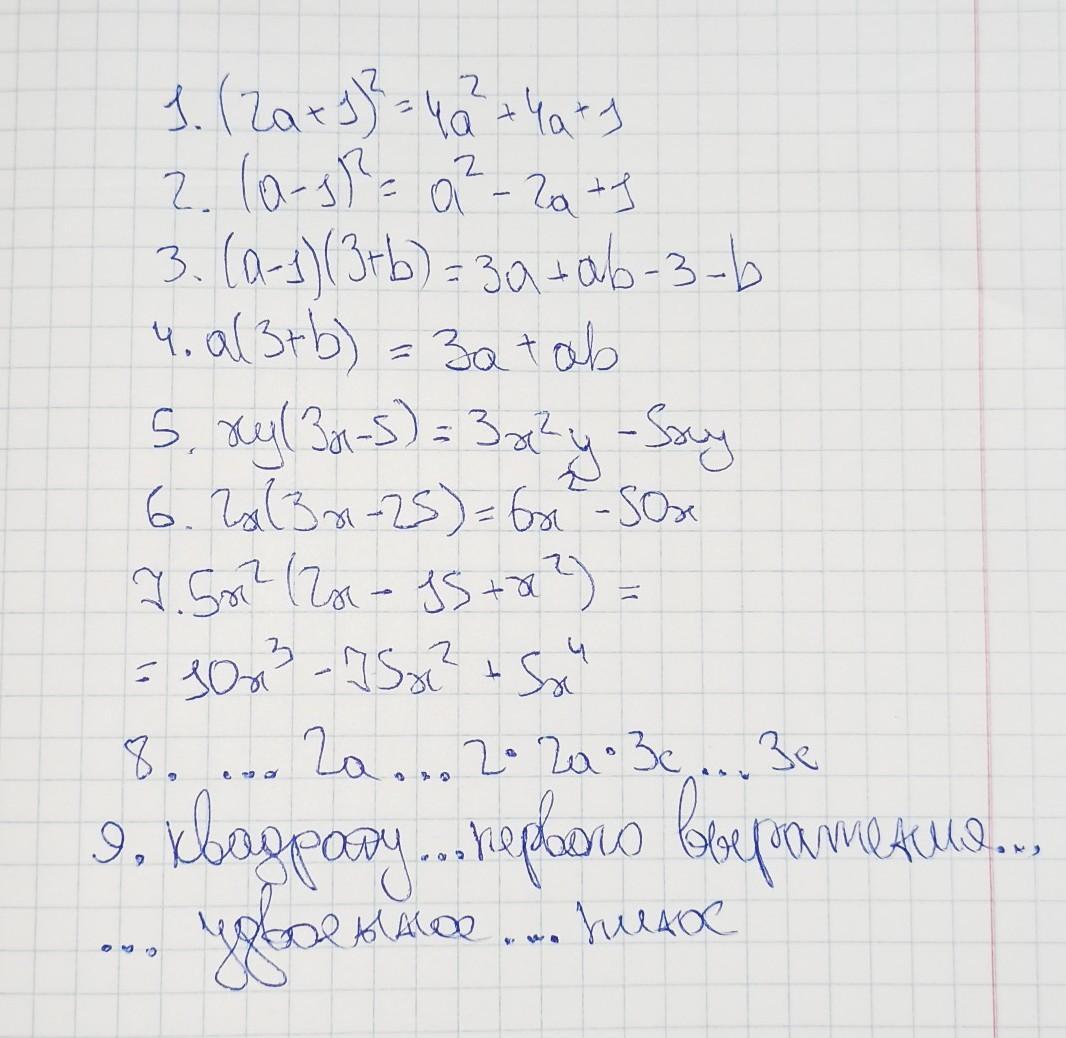 1. (2a+1)² = 4a² + 4a + 1
2. (a-1)² = a² - 2a + 1
3. (a-1)(3+b) = 3a + ab - 3 - b
4. a(3+b) = 3a + ab
5. xy(3x-5) = 3x²y - 5xy
6. 2x(3x-25) = 6x² - 50x
7. 5x²(2x - 15 + x²) =
= 10x³ - 75x² + 5x⁴
8. .... 2a .... 2·2a·3c .... 3c
9. квадрату ... первого выражения...
... удвоенное .... плюс